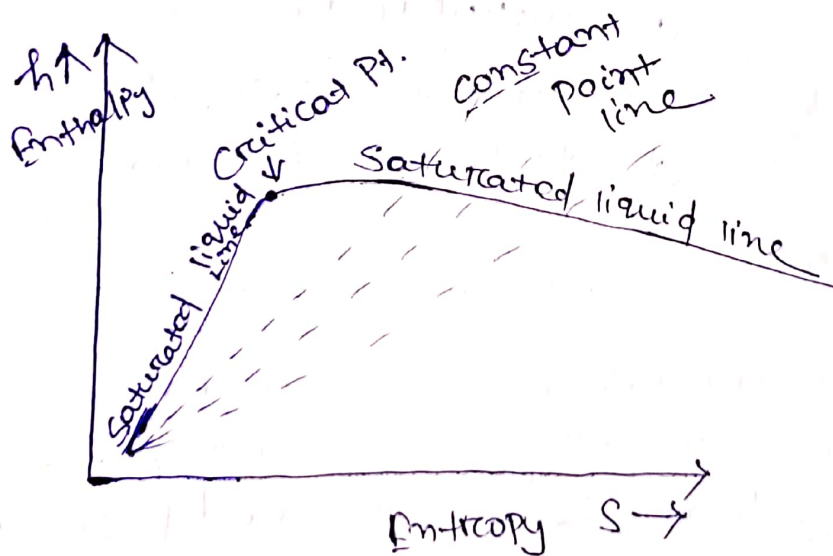 h↑
Enthalpy
Critical Pt.
constant
point
line
Saturated liquid
Line
Saturated liquid line
Entropy S →